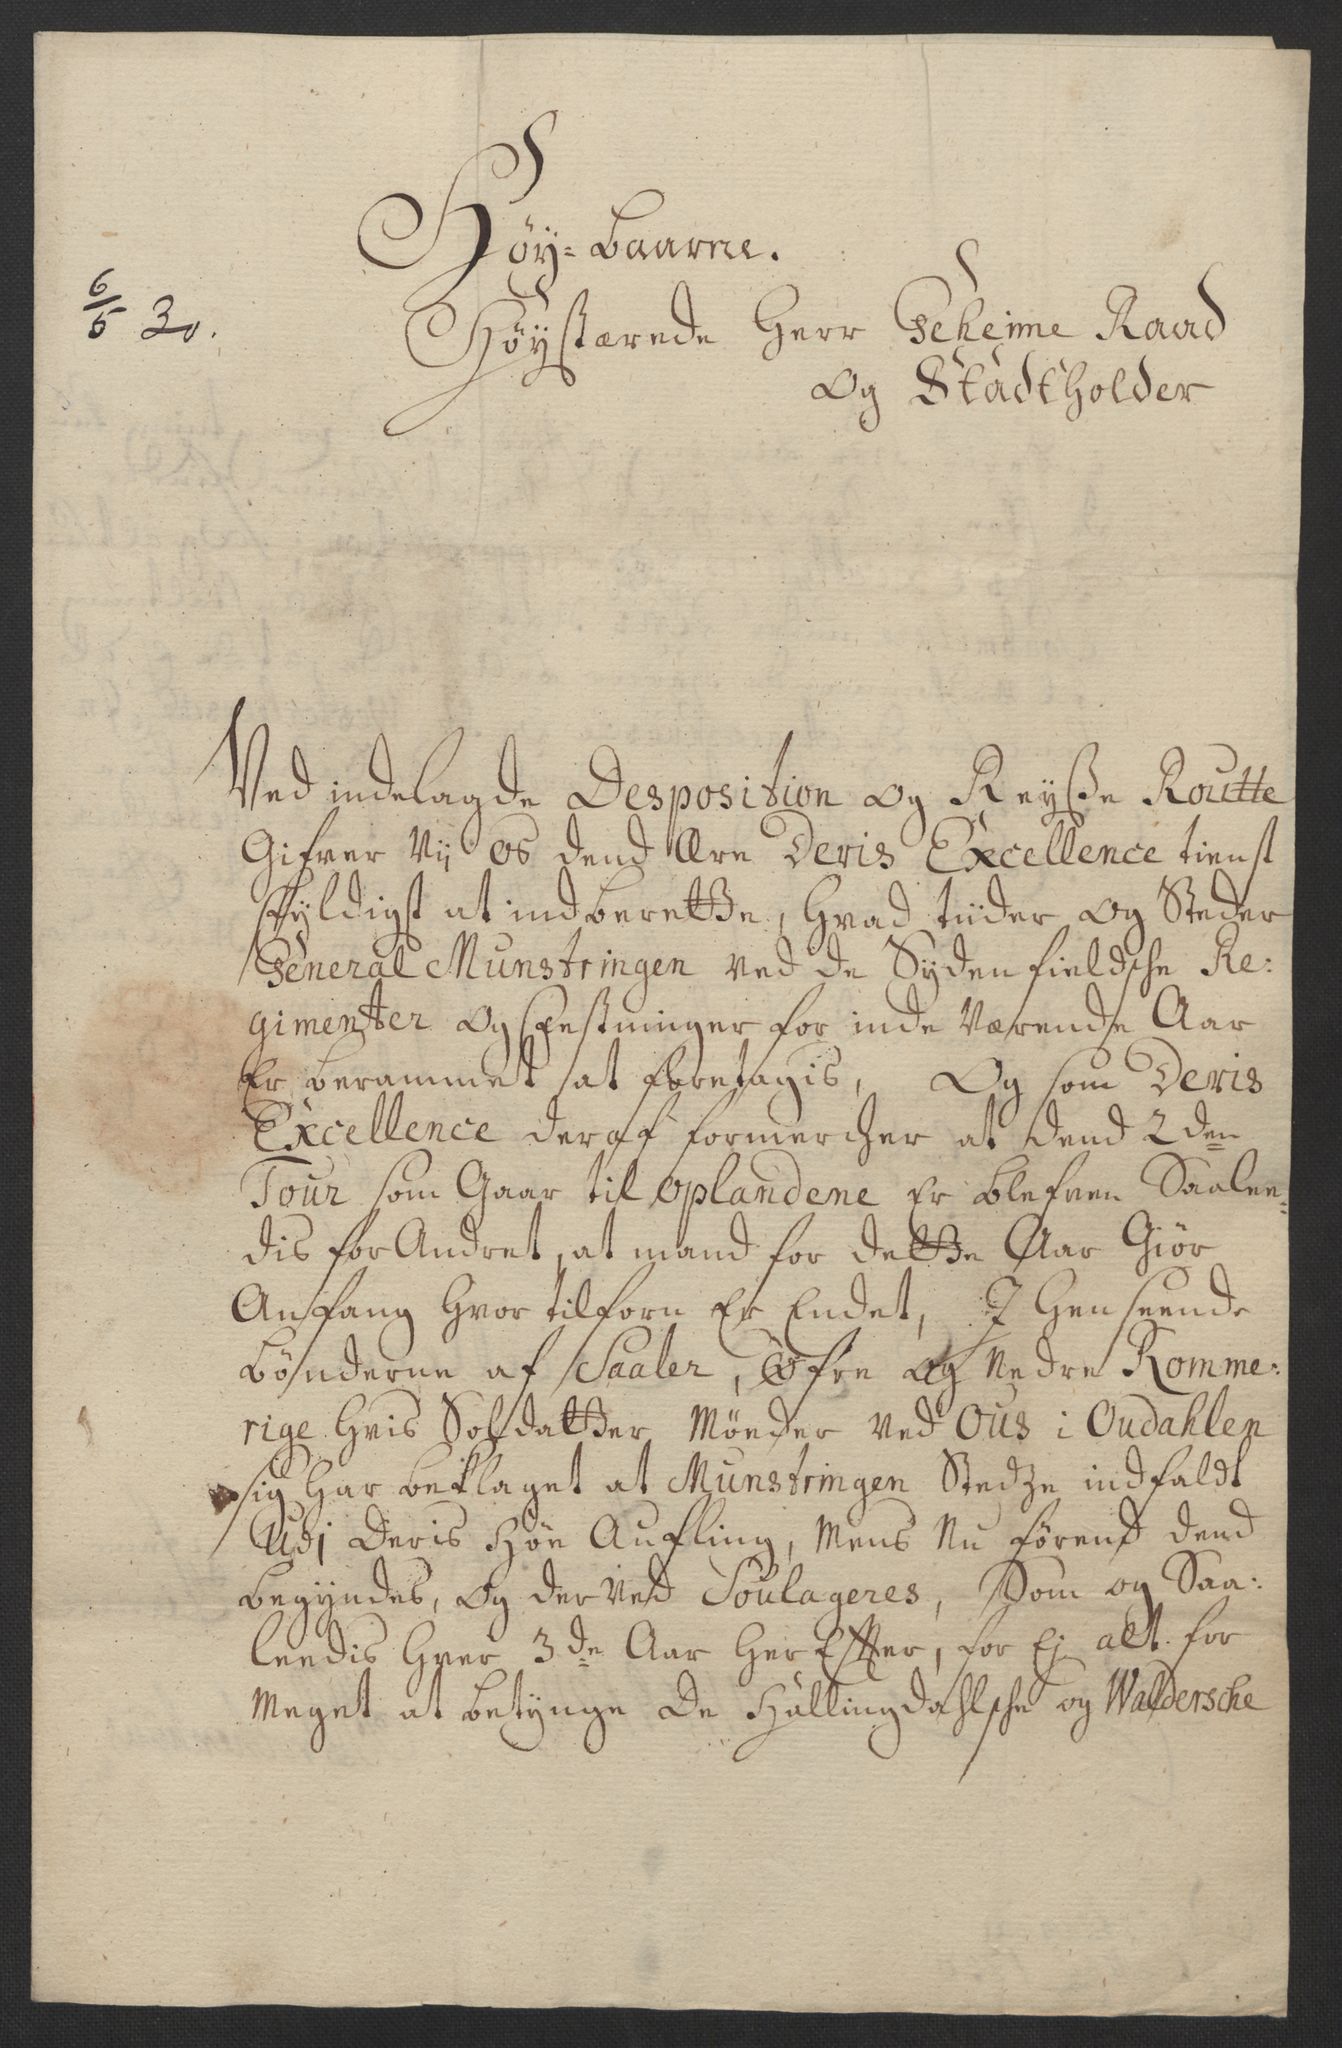 Høy-baarne.
6/5 30.
Høystærede Herr Geheime Raad
og Stadtholder
Ved indelagde Desposition og Reysse Routte
Gifver vij os dend Ære Deris Excellence tienst
skyldigst at indberette, hvad tiider og Steder
General Munstringen ved de Sydenfieldsche Re:
gimenter og Festninger for indeværende Aar
Er berammet at foretagis, Og som Deris
Excellence deraf formercher at dend 2den
Tour som Gaar til oplandene Er blefven Saalee=
dis forAndret, at mand for dette Aar Giør
Anfang hvor tilforn Er Endet, I henseende
bønderne af Saaler, Øfre og Nedre Romme:
rige hvis Soldatter Møeder ved Ous i Oudahlen
sig har beklaget at Munstringen Stedze indfaldt
Udj Deris Høe Aufling, mens Nu førend dend
begyndes, og derved Soulageres, Som og Saa:
leedis hver 3de Aar her Efter, for Ej alt for
Meget at betynge de Hallingdahlsche og Waldersche